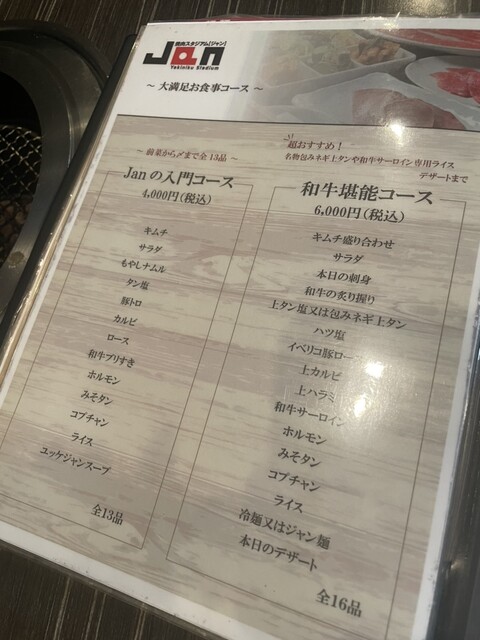 焼肉スタジアム[ジャン]
Jan
Yakiniku Stadium
～ 大満足お食事コース ～
～ 前菜から〆まで全13品 ～
Janの入門コース
4,000円(税込)
キムチ
サラダ
もやしナムル
タン塩
豚トロ
カルビ
ロース
和牛プリすき
ホルモン
みそタン
コプチャン
ライス
ユッケジャンスープ
全13品
超おすすめ！
名物包みネギ上タンや和牛サーロイン専用ライス
デザートまで
和牛堪能コース
6,000円(税込)
キムチ盛り合わせ
サラダ
本日の刺身
和牛の炙り握り
上タン塩又は包みネギ上タン
ハツ塩
イベリコ豚ロース
上カルビ
上ハラミ
和牛サーロイン
ホルモン
みそタン
コプチャン
ライス
冷麺又はジャン麺
本日のデザート
全16品